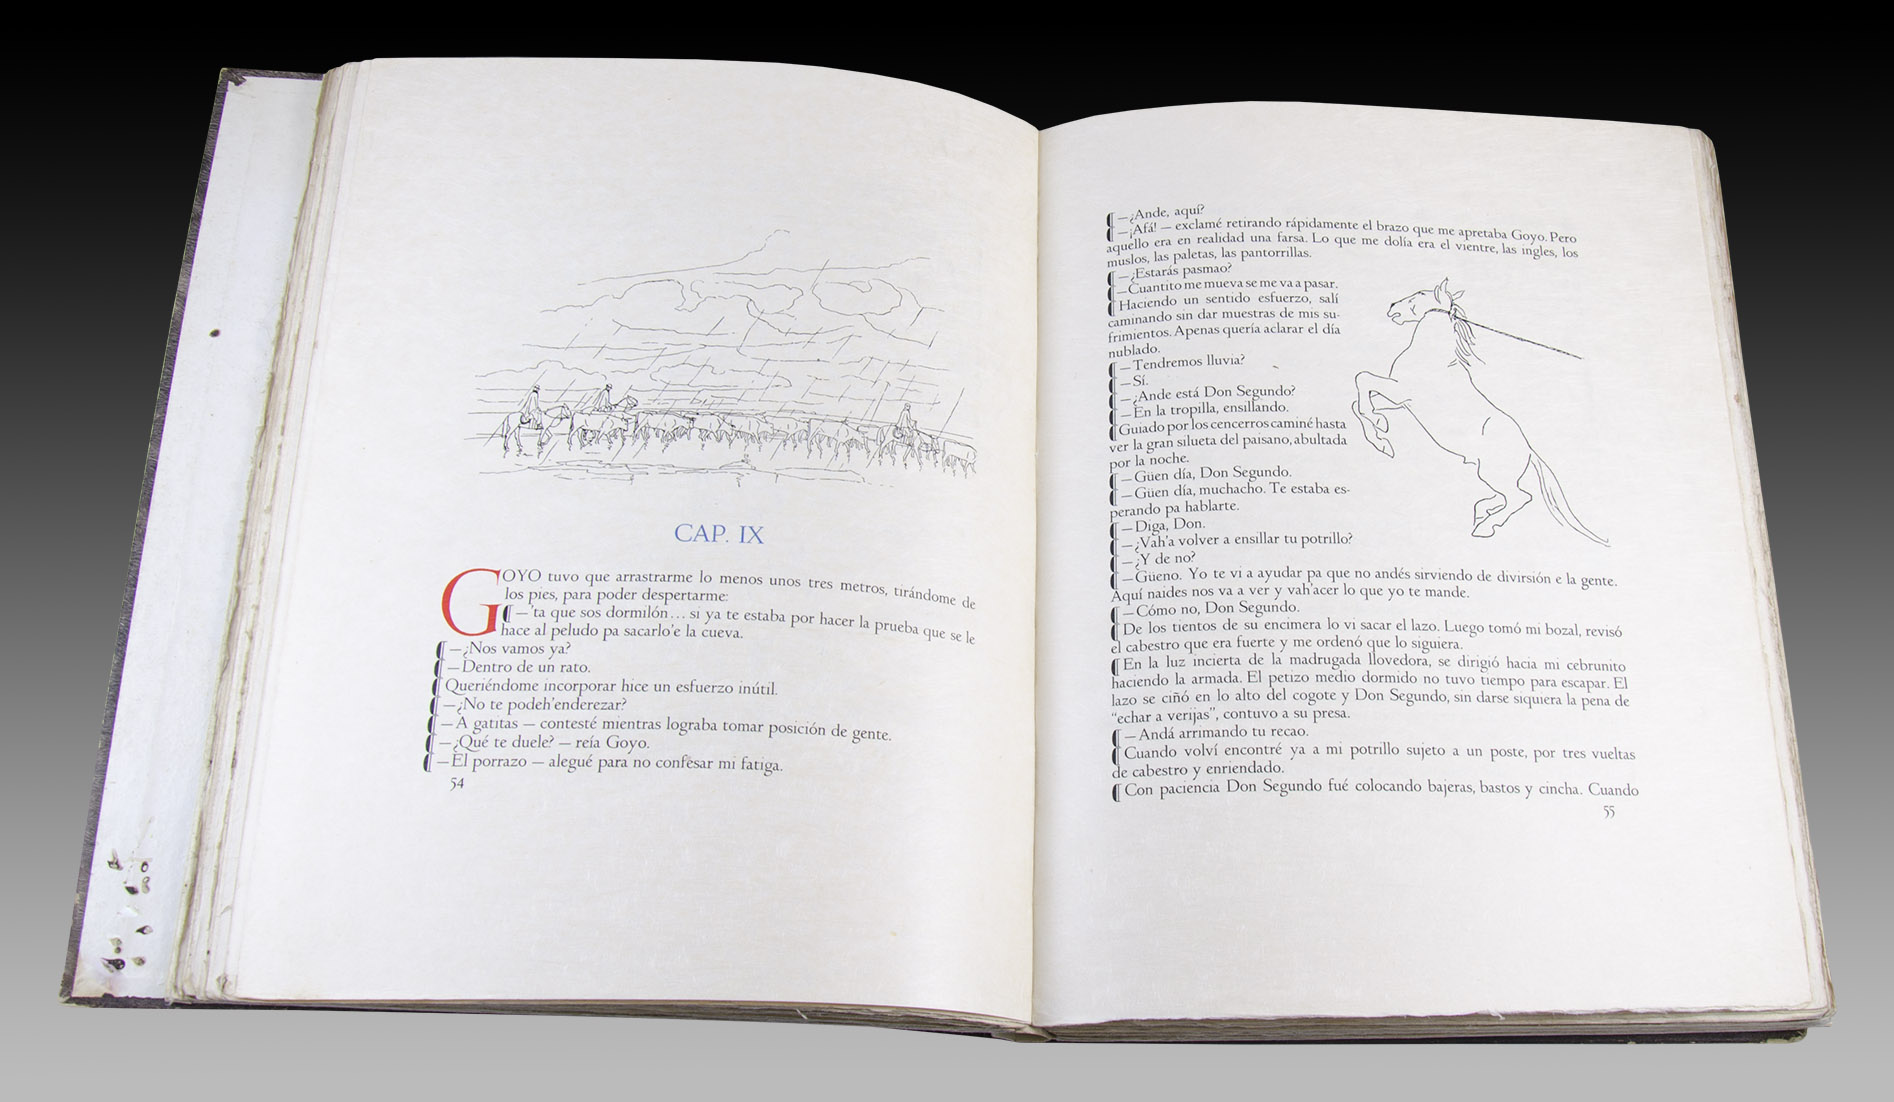 CAP. IX
GOYO tuvo que arrastrarme lo menos unos tres metros, tirándome de
los pies, para poder despertarme:
—'ta que sos dormilón... si ya te estaba por hacer la prueba que se le
hace al peludo pa sacarlo'e la cueva.
—¿Nos vamos ya?
—Dentro de un rato.
Queriéndome incorporar hice un esfuerzo inútil.
—¿No te podeh'enderezar?
—A gatitas — contesté mientras lograba tomar posición de gente.
—¿Qué te duele? — reía Goyo.
—El porrazo — alegué para no confesar mi fatiga.
54
—¿Ande, aquí?
—¡Afá! — exclamé retirando rápidamente el brazo que me apretaba Goyo. Pero
aquello era en realidad una farsa. Lo que me dolía era el vientre, las ingles, los
muslos, las paletas, las pantorrillas.
—¿Estarás pasmao?
—Cuantito me mueva se me va a pasar.
Haciendo un sentido esfuerzo, salí
caminando sin dar muestras de mis su-
frimientos. Apenas quería aclarar el día
nublado.
—Tendremos lluvia?
—Sí.
—¿Ande está Don Segundo?
—En la tropilla, ensillando.
Guiado por los cencerros caminé hasta
ver la gran silueta del paisano, abultada
por la noche.
—Güen día, Don Segundo.
—Güen día, muchacho. Te estaba es-
perando pa hablarte.
—Diga, Don.
—¿Vah'a volver a ensillar tu potrillo?
—¿Y de no?
—Güeno. Yo te vi a ayudar pa que no andés sirviendo de divirsión e la gente.
Aquí naides nos va a ver y vah'acer lo que yo te mande.
—Cómo no, Don Segundo.
De los tientos de su encimera lo vi sacar el lazo. Luego tomó mi bozal, revisó
el cabestro que era fuerte y me ordenó que lo siguiera.
En la luz incierta de la madrugada llovedora, se dirigió hacia mi cebrunito
haciendo la armada. El petizo medio dormido no tuvo tiempo para escapar. El
lazo se ciñó en lo alto del cogote y Don Segundo, sin darse siquiera la pena de
“echar a verijas”, contuvo a su presa.
—Andá arrimando tu recao.
Cuando volví encontré ya a mi potrillo sujeto a un poste, por tres vueltas
de cabestro y enriendado.
Con paciencia Don Segundo fué colocando bajeras, bastos y cincha. Cuando
55